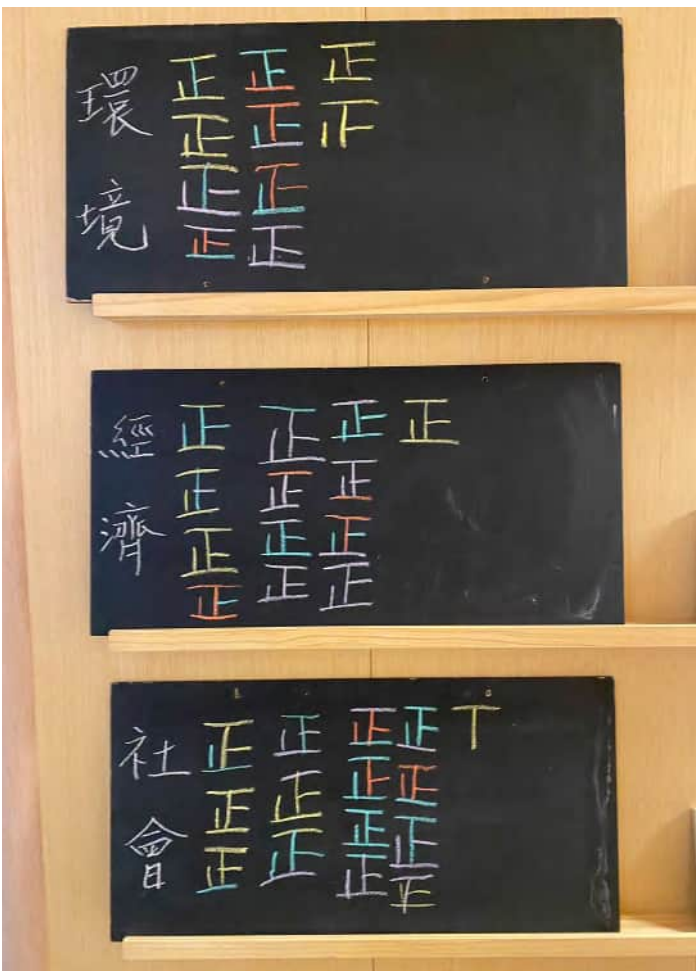 環境
正正正正
正正正正
正
經濟
正正正正
正正正正
正正正正
正
社會
正正正
正正正
正正正正
正正正正
丅